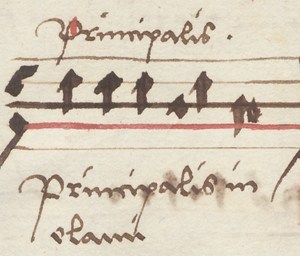 Principalis.
Principalis in
elami